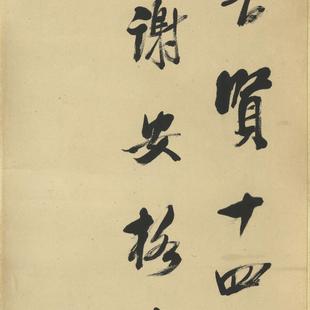 賢十四
謝安格